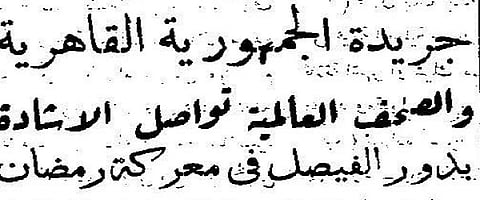 جريدة الجمهورية القاهرية
والصحف العالمية تواصل الاشادة
بدور الفيصل في معركة رمضان